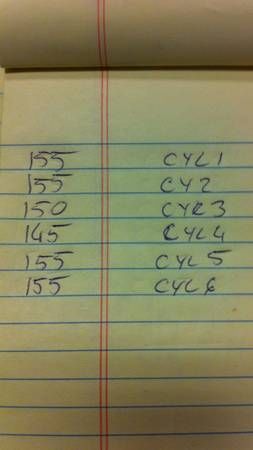 155 CYL1
155 CY2
150 CYL3
145 CYL4
155 CYL5
155 CYL6